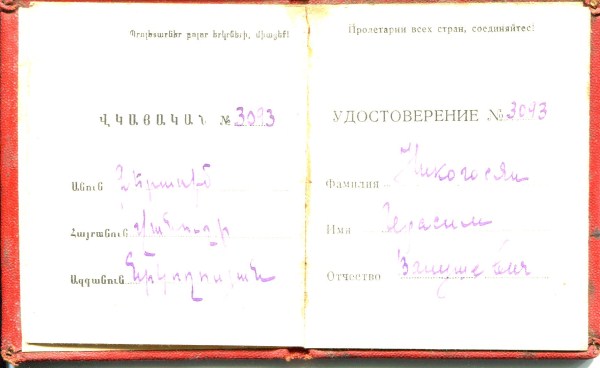 Պրոլետարներ բոլոր երկրների, միացե՛ք
ՎԿԱՅԱԿԱՆ № 3093
Անուն Գերասիմ
Հայրանուն Վանուշի
Ազգանուն Նիկողոսյան
Пролетарии всех стран, соединяйтесь!
УДОСТОВЕРЕНИЕ № 3093
Фамилия Никогосян
Имя Герасим
Отчество Ванушевич